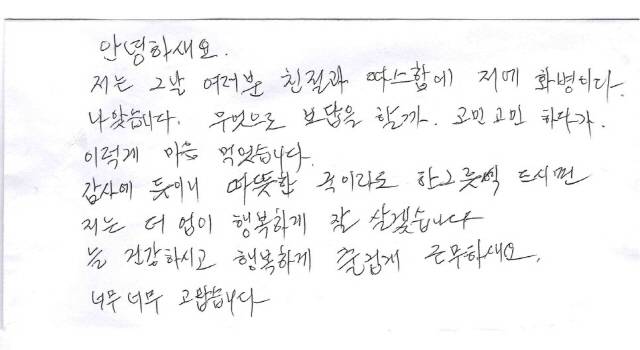 안녕하새요.
저는 그날 여러분 친절과 따스함에 저에 화병이다.
나았습니다. 무엇으로 보답을 할까. 고민고민 하다가.
이럭게 마음 먹었습니다.
감사에 듯이니 따뜻한 국이라도 한그릇씩 드시면
저는 더 업이 행복하게 잘 살겠습니다
늘 건강하시고 행복하게 즐겁게 근무하새요.
너무너무 고맙습니다